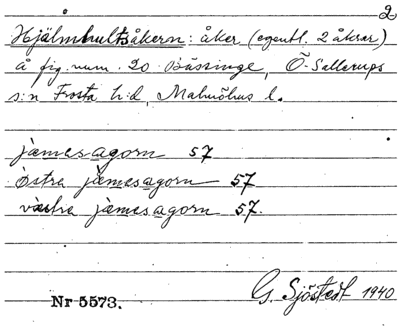 2
Hjälmhultsåkern: åker (egentl. 2 åkrar)
å fig. num. 20 Bässinge, Ö. Sallerups
s:n Frosta h:d, Malmöhus l.
jæmesagorn 57
östra jæmesagorn 57
västra jæmesagorn 57.
G. Sjöstedt 1940
Nr 5573.